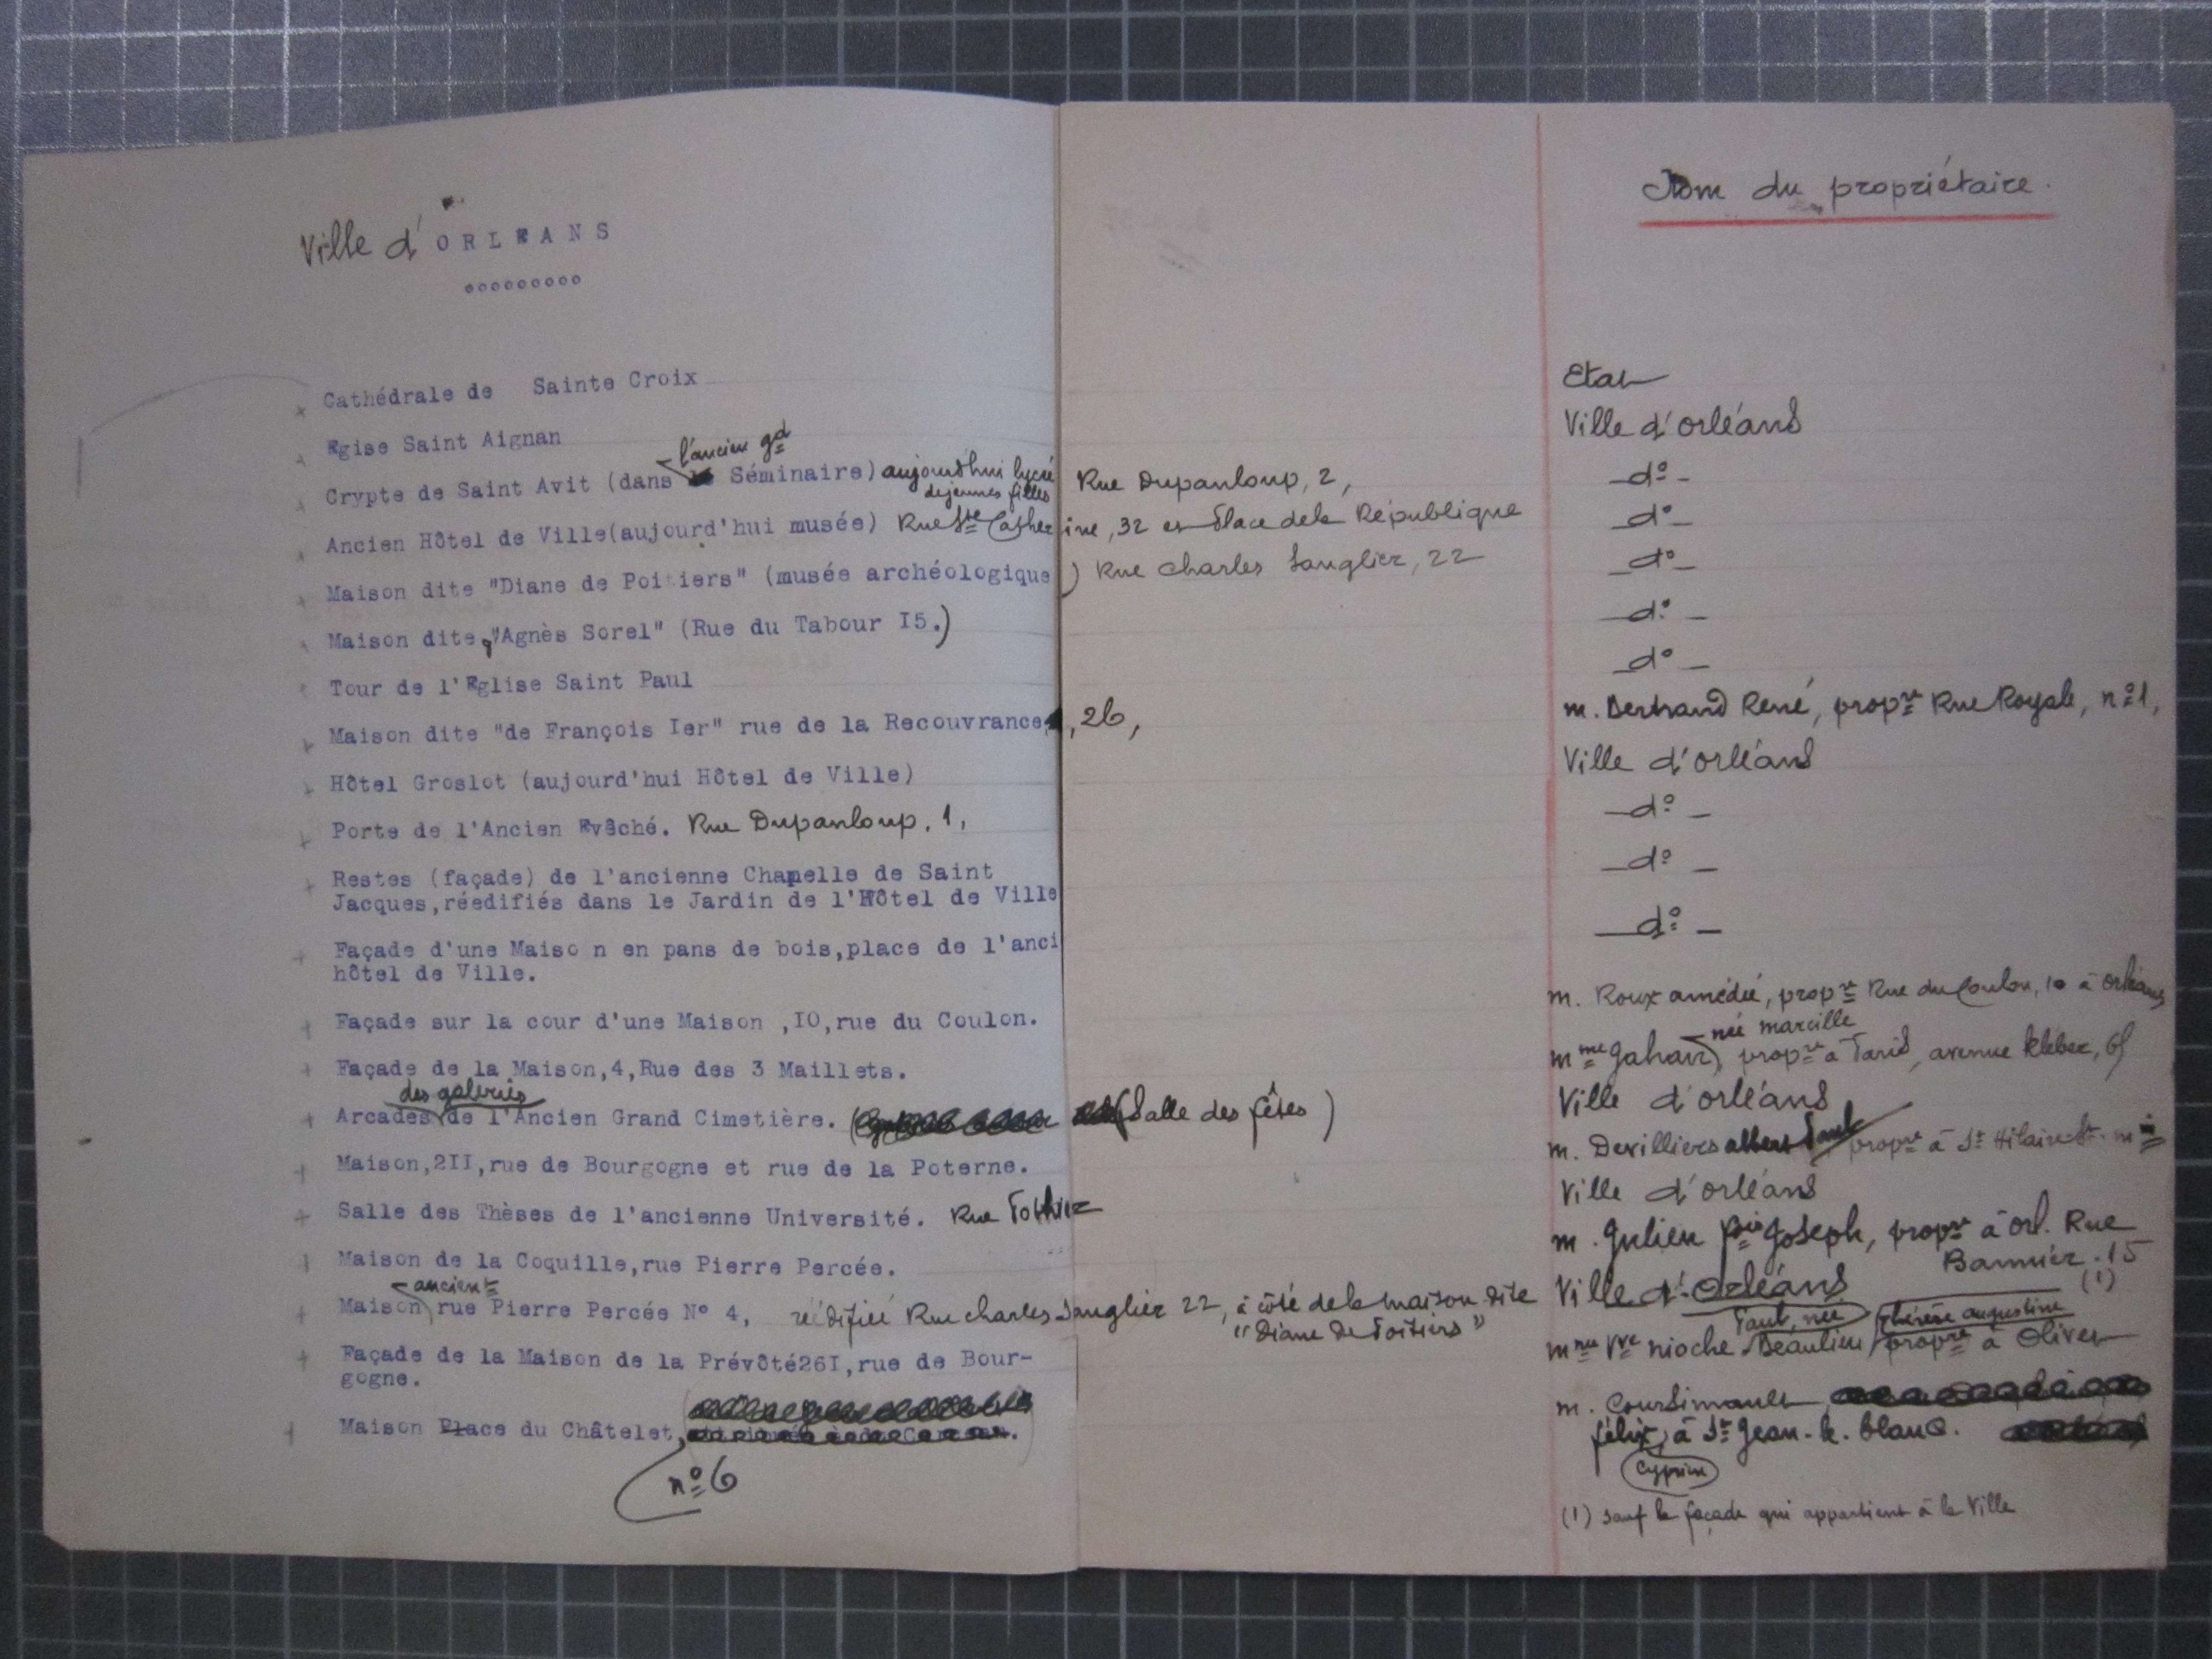 Nom du propriétaire.
Ville d' ORLEANS
ooooooooo
Cathédrale de Sainte Croix
Etat
Egise Saint Aignan
Ville d'orléans
l'ancien gd
Crypte de Saint Avit (dans Séminaire) aujourd'hui lycée
de jeunes filles
Rue Dupanloup, 2,
d° -
Ancien Hôtel de Ville(aujourd'hui musée) Rue Ste Catherine, 32 et Place de la République
- d° -
Maison dite "Diane de Poitiers" (musée archéologique) Rue Charles Sanglier, 22
- d° -
Maison dite "Agnès Sorel" (Rue du Tabour I5.)
- d° -
Tour de l'Eglise Saint Paul
- d° -
Maison dite "de François Ier" rue de la Recouvrance, 26,
m. Bertrand René, propre Rue Royale, n° 1,
Hôtel Groslot (aujourd'hui Hôtel de Ville)
Ville d'orléans
Porte de l'Ancien Evêché. Rue Dupanloup, 1,
- d° -
Restes (façade) de l'ancienne Chapelle de Saint
Jacques,réedifiés dans le Jardin de l'Hôtel de Ville
- d° -
Façade d'une Maiso n en pans de bois,place de l'anci
hôtel de Ville.
- d° -
Façade sur la cour d'une Maison ,I0,rue du Coulon.
m. Roux amédée, propre Rue du Coulon, 10 à Orléans
née marcille
Façade de la Maison,4,Rue des 3 Maillets.
mme propre à Paris, avenue Kléber,
des galeries
Arcades de l'Ancien Grand Cimetière. (Salle des fêtes)
Ville d'orléans
Maison,2II,rue de Bourgogne et rue de la Poterne.
m. Devilliers propre à St Hilaire St. min
Salle des Thèses de l'ancienne Université. Rue Pothier
Ville d'orléans
Maison de la Coquille,rue Pierre Percée.
m. Julien fois Joseph, propre à Orl. Rue
Bannier. 15
(1)
ancient
Maison rue Pierre Percée N° 4, réédifiée Rue charles Sanglier 22, à côté de la maison dite
"Diane de Poitiers"
Ville d'Orléans
Paul, née Thérèse augustine
Façade de la Maison de la Prévôté26I,rue de Bour-
gogne.
mme Vve nioche Beaulieu propre à Olivet
Maison Place du Châtelet,
n° 6
m. Coursimault
félix, à St Jean-le-blanc.
Cyprien
(1) sauf la façade qui appartient à la Ville